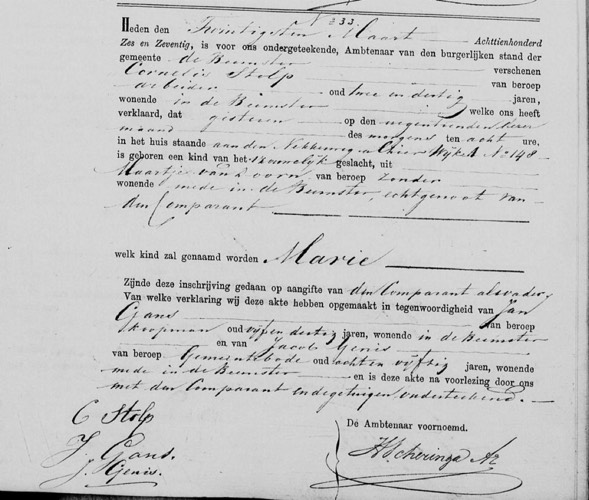 N° 33.
Heden den Twintigsten Maart Achttienhonderd
Zes en Zeventig, is voor ons ondergeteekende, Ambtenaar van den burgerlijken stand der
gemeente de Beemster verschenen
Cornelis Stolp van beroep
arbeider oud twee en dertig jaren,
wonende in de Beemster welke ons heeft
verklaard, dat gisteren op den negentienden dezer
maand des morgens ten acht ure,
in het huis staande aan den Nekkerweg alhier Wijk No 148
is geboren een kind van het geslacht, uit
Maartje van Doorn van beroep zonder
wonende mede in de Beemster, echtgenoot van
den Comparant
welk kind zal genaamd worden Marie
Zijnde deze inschrijving gedaan op aangifte van den Comparant als vader
Van welke verklaring wij deze akte hebben opgemaakt in tegenwoordigheid van Jan
Gans van beroep
koopman oud vijf en dertig jaren, wonende in de Beemster
en van Jacob Genis
van beroep Gemeentebode oud acht en vijftig jaren, wonende
mede in de Beemster en is deze akte na voorlezing door ons
met den Comparant en de getuigen onderteekend.
C Stolp De Ambtenaar voornoemd.
J Gans. HScheringa Az
J. Genis.